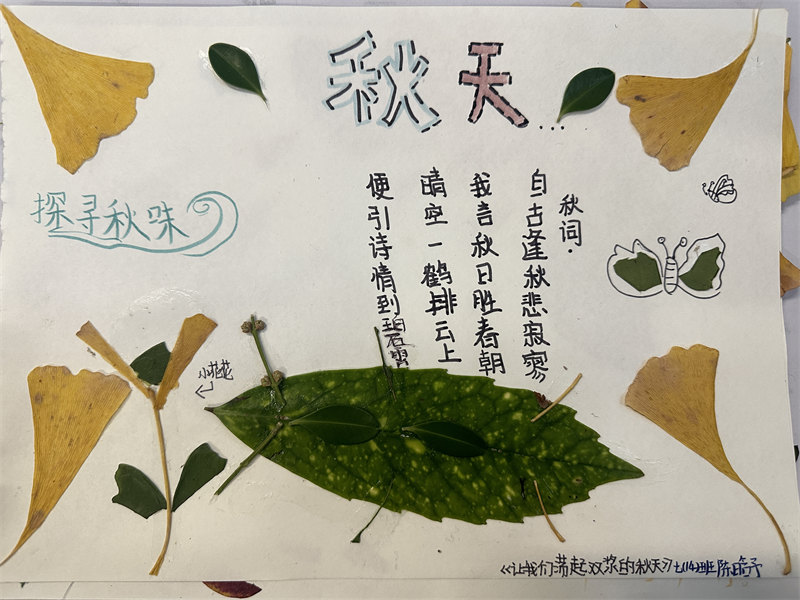 秋天...
探寻秋味
秋词.
自古逢秋悲寂寥
我言秋日胜春朝
晴空一鹤排云上
便引诗情到碧霄
小花花
《让我们荡起双浆的秋天》七(14)班 陈